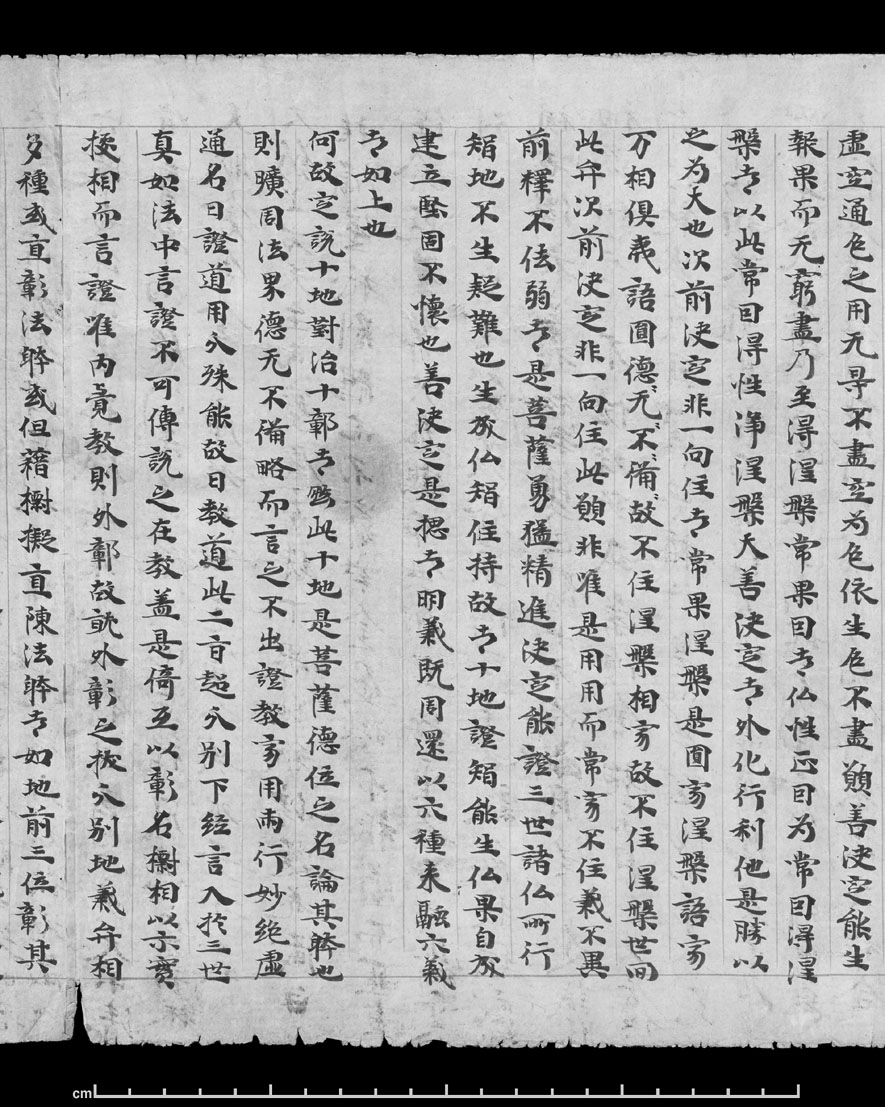 虛空通色之用无㝵不盡空为色依生色不盡願善決定能生
報果而无窮盡乃至淂涅槃常果曰者仏性正因为常因淂涅
槃者以此常因淂性淨涅槃大善決定者外化行利他是勝以
之为大也次前決定非一向住者常果涅槃是圓寂涅槃語寂
万相俱夷語圓德无不俻故不住涅槃相寂故不住涅槃世間
此弁次前決定非一向住此願非唯是用用而常寂不住義不異
前釋不怯弱者是菩薩勇猛精進決定能證三世諸仏所行
智地不生疑難也生於仏智住持故者十地證智能生仏果自於
建立堅固不懷也善決定是揔者明義既周還以六種来融六義
者如上也
何故定說十地對治十鄣者然此十地是菩薩德位之名論其體也
則曠周法界德无不俻略而言之不出證教寂用兩行妙絶虛
通名曰證道用亦殊能故曰教道此二旨超亦别下経言入於三世
真如法中言證不可傳說之在教盖是倚互以彰名㯕相以示寳
挍相而言證唯內覺教則外鄣故就外彰之挍亦别地義弁相
多種或直彰法體或但藉㯕擬直陳法體者如地前三位彰其